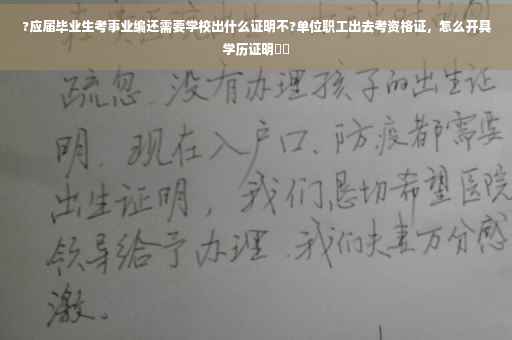 ?应届毕业生考事业编还需要学校出什么证明不?单位职工出去考资格证，怎么开具
学历证明
疏忽.没有办理孩子的出生证
明.现在入户口、防疫都需要
出生证明，我们恳切希望医院
领导给予办理.我们夫妻万分感
激。